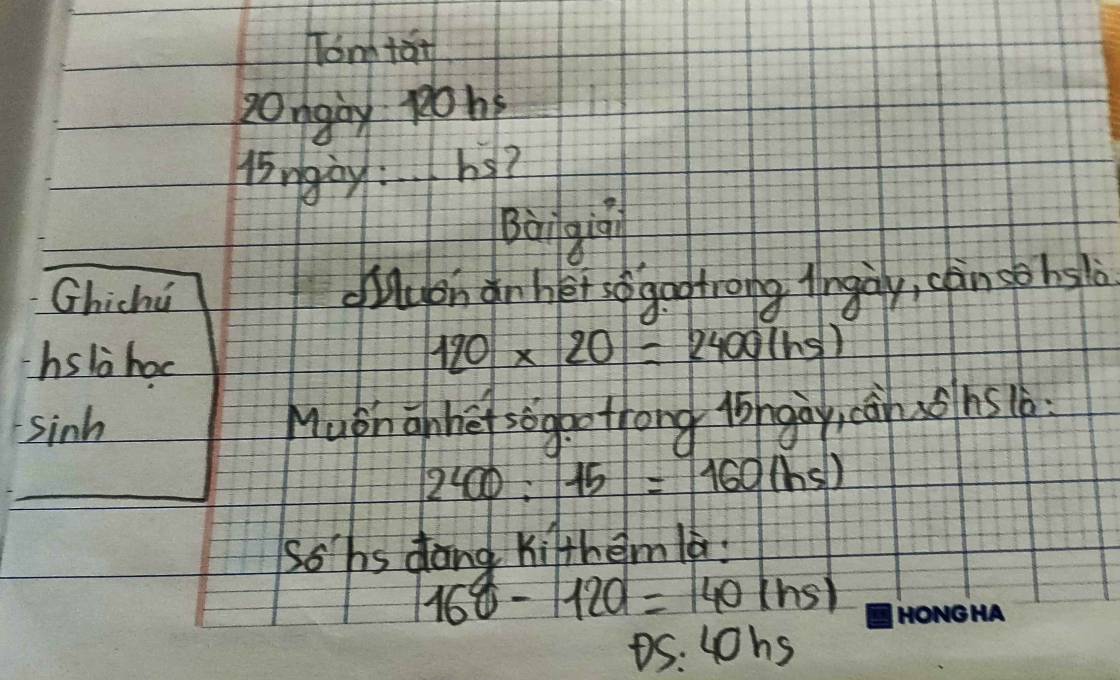 Tóm tắt
20 ngày 120 hs
15 ngày: ... hs?
Bài giải
Ghi chú
- hs là học
- sinh
Muốn ăn hết số gạo trong 1 ngày, cần số hs là
120 x 20 = 2400 (hs)
Muốn ăn hết số gạo trong 15 ngày, cần số hs là:
2400 : 15 = 160 (hs)
Số hs đăng kí thêm là:
160 - 120 = 40 (hs)
ĐS: 40 hs
HONG HA